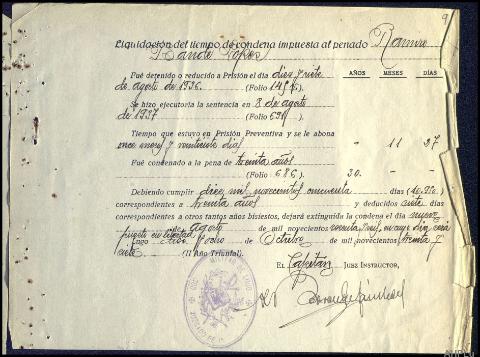 9
Liquidación del tiempo de condena impuesta al penado Ramiro
López
Fué detenido o reducido a Prisión el día diez y siete
AÑOS MESES DÍAS
de agosto de 1936. (Folio
Se hizo ejecutoria la sentencia en 8 de agosto
de 1937 (Folio
Tiempo que estuvo en Prisión Preventiva y se le abona
once meses y veintisiete días - 11 27
Fué condenado a la pena de treinta años
(Folio 686.) 30. - -
Debiendo cumplir diez mil novecientos cincuenta días
correspondientes a treinta años y deducidos siete días
correspondientes a otros tantos años bisiestos, dejará extinguida la condena el día nueve
de Agosto de mil novecientos sesenta y seis, en cuyo día será
puesto en libertad.
Lugo ocho de Octubre de mil novecientos treinta y
siete (II Año Triunfal).
EL Capitán JUEZ INSTRUCTOR,